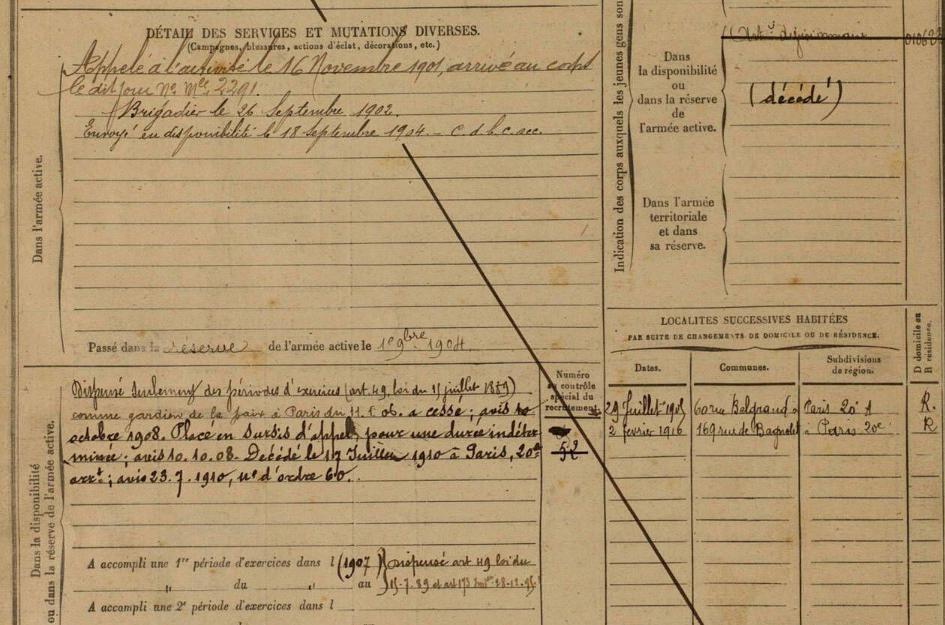 DÉTAIL DES SERVICES ET MUTATIONS DIVERSES.
(Campagnes, blessures, actions d'éclat, décorations, etc.)
Appelé à l'activité le 16 Novembre 1901, arrivé au corps
le dit jour Nº Mle 2291.
Brigadier le 26 Septembre 1902.
Envoyé en disponibilité le 18 Septembre 1904. – C. d. b. c. acc.
Dans l'armée active.
Passé dans la réserve de l'armée active le 1er 9bre 1904.
Dispensé seulement des périodes d'exercices (art. 49, loi du 15 juillet 1889)
comme gardien de la paix à Paris du 11.1.06. a cessé; avis 10
octobre 1908. Placé en sursis d'appel pour une durée indéter
minée; avis 10.10.08. Décédé le 17 Juillet 1910 à Paris, 20e
arrt; avis 23.7.1910, nº d'ordre 60.
Dans la disponibilité
ou dans la réserve de l'armée active.
A accompli une 1re période d'exercices dans l (1907) Dispensé art 49 loi du
" du " au 15-7-89 et art
A accompli une 2e période d'exercices dans l
Numéro
au contrôle
spécial du
recrutement.
52
Indication des corps auxquels les jeunes gens son
Dans
la disponibilité
ou
dans la réserve
de
l'armée active.
(décédé)
Dans l'armée
territoriale
et dans
sa réserve.
LOCALITÉS SUCCESSIVES HABITÉES
PAR SUITE DE CHANGEMENTS DE DOMICILE OU DE RÉSIDENCE.
Dates. Communes. Subdivisions de région. D domicile ou R résidence.
29 Juillet 1905 60 rue Belgrand à Paris 20e R.
2 février 1916 169 rue de Bagnolet à Paris 20e R